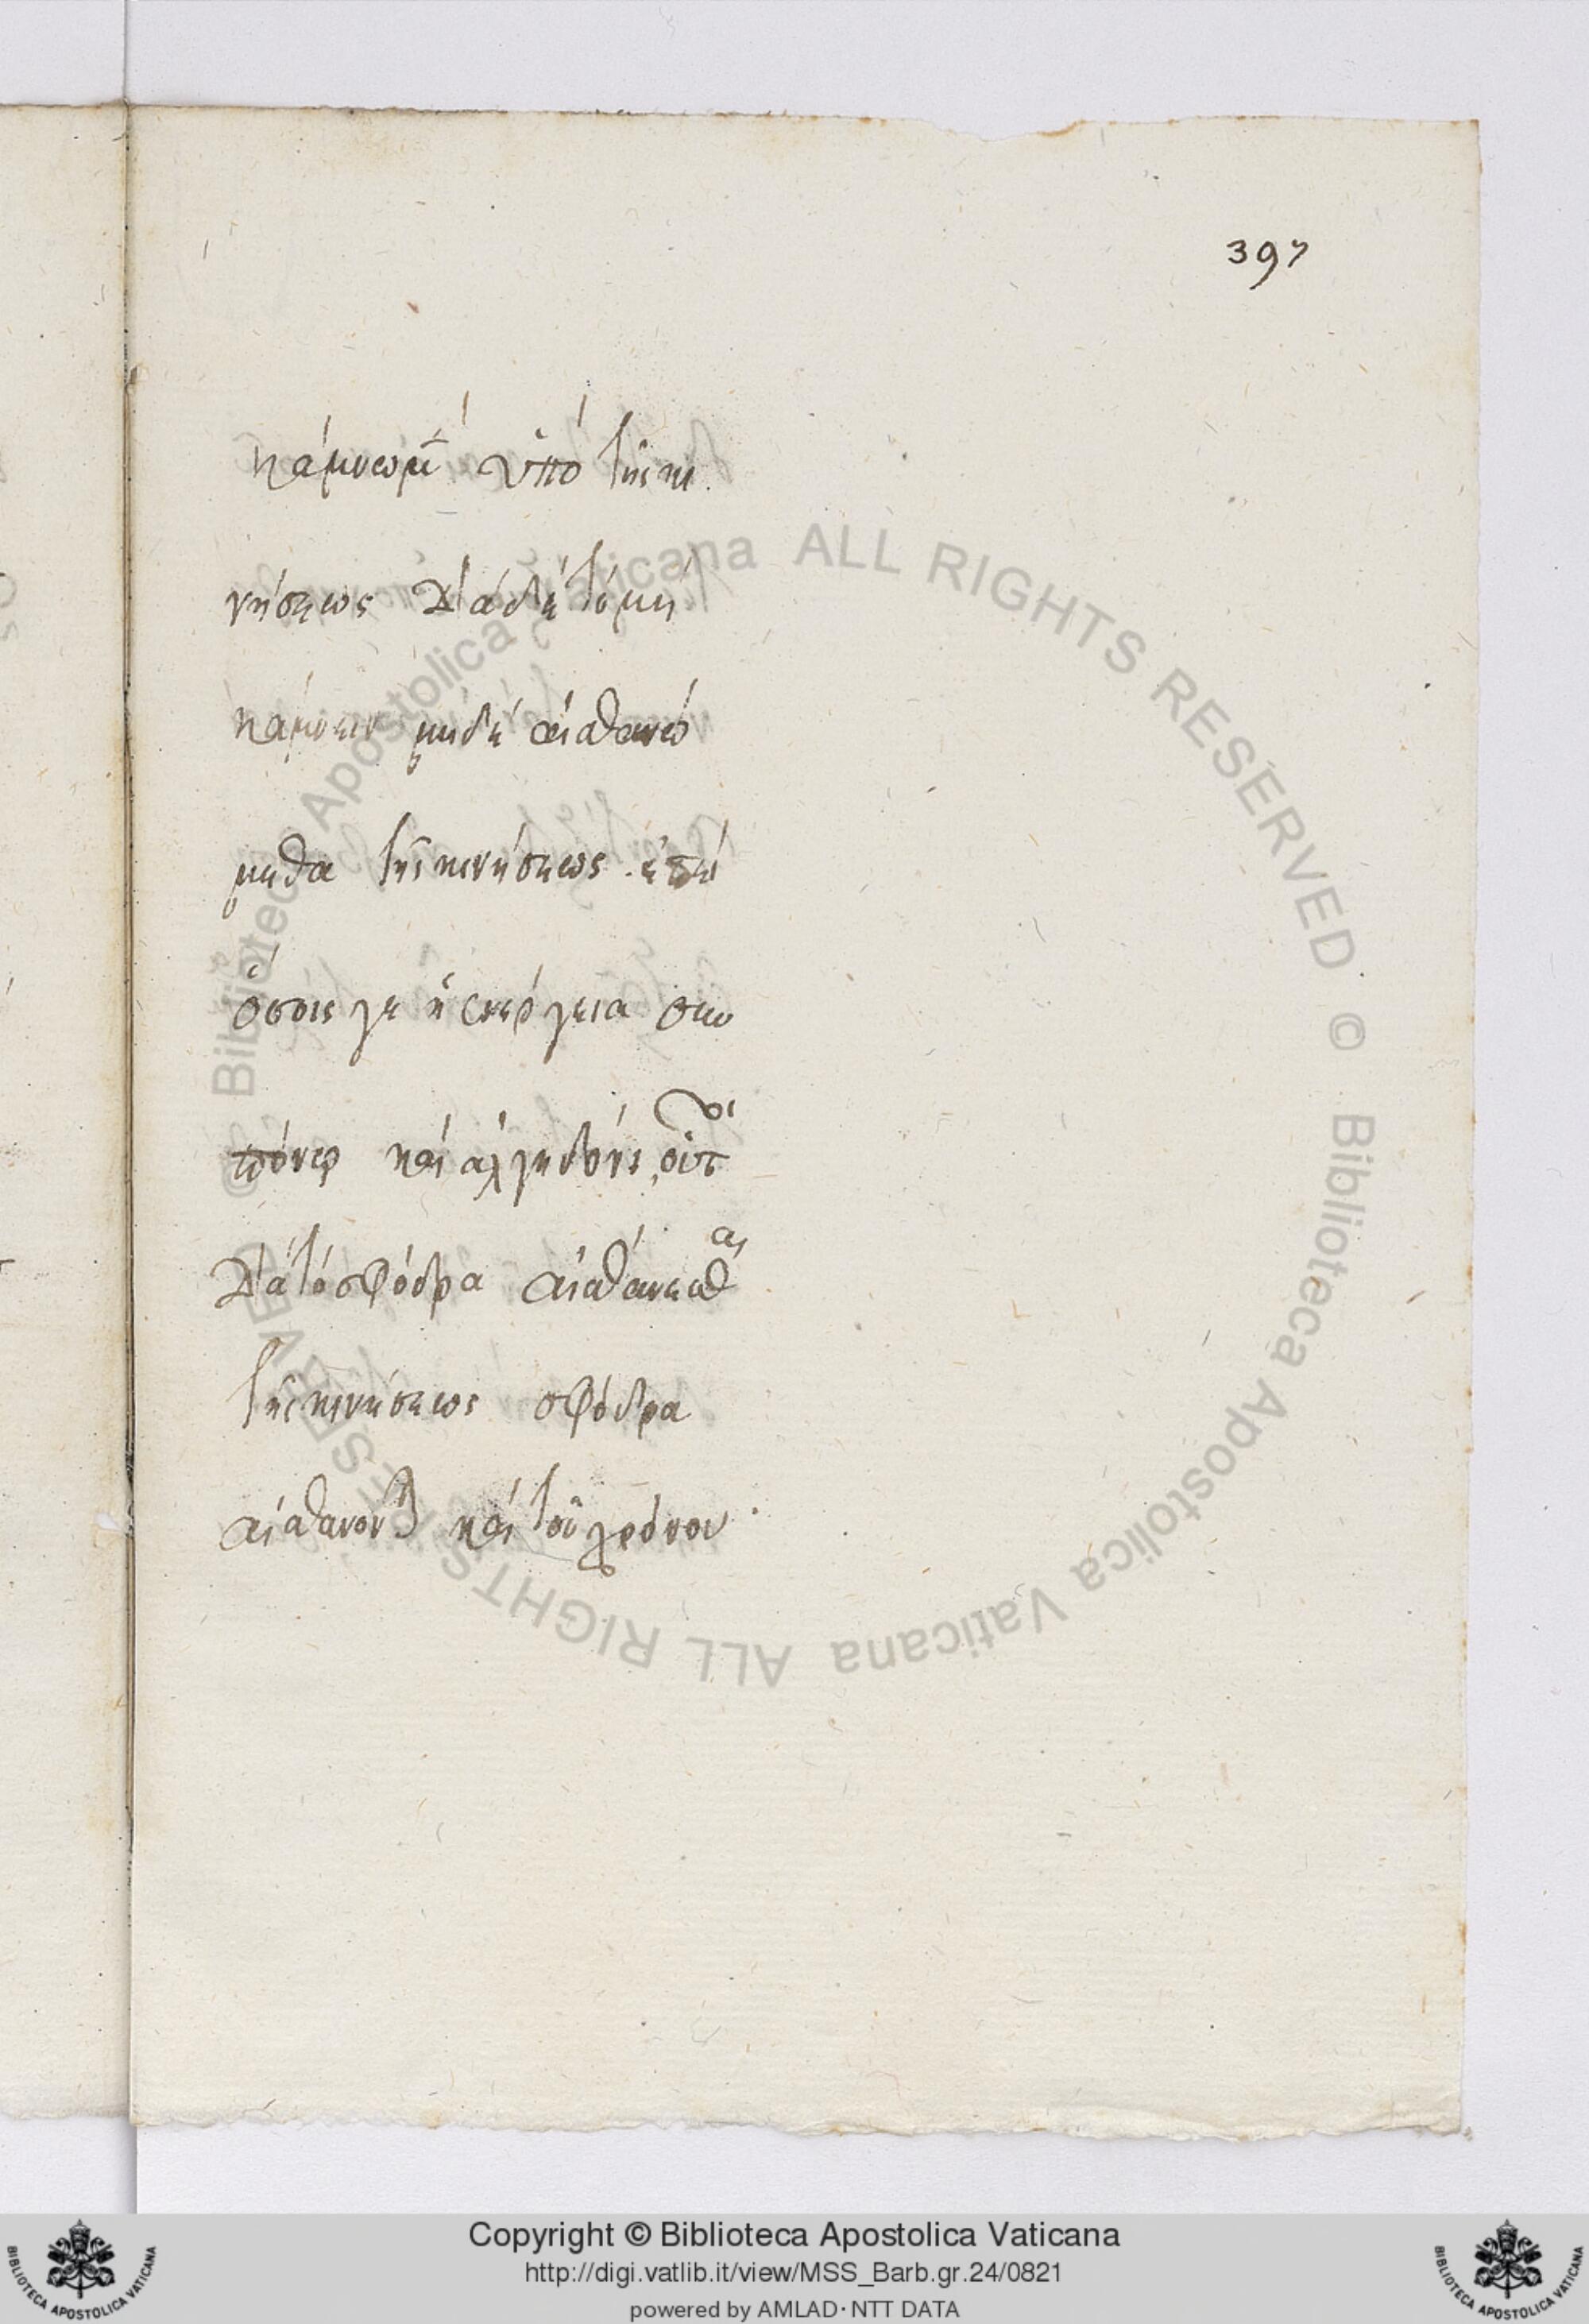 397
κάμνωμεν ὑπὸ τῆς κι
νήσεως διὰ δὲ τὸ μὴ
κάμνειν μηδὲ αἰσθανώ
μεθα τῆς κινήσεως ἐπεὶ
ὅσοις γε ἡ ἐνέργεια σὺν
πόνῳ καὶ ἀλγηδόνι, οὗτοι
διὰ τὸ σφόδρα αἰσθάνεσθαι
τῆς κινήσεως σφόδρα
αἰσθάνονται καὶ τοῦ χρόνου.
Biblioteca Apostolica Vaticana ALL RIGHTS RESERVED © Biblioteca Apostolica Vaticana ALL RIGHTS RESERVED ©
Copyright © Biblioteca Apostolica Vaticana
http://digi.vatlib.it/view/MSS_Barb.gr.24/0821
powered by AMLAD·NTT DATA
BIBLIOTECA APOSTOLICA VATICANA
BIBLIOTECA APOSTOLICA VATICANA